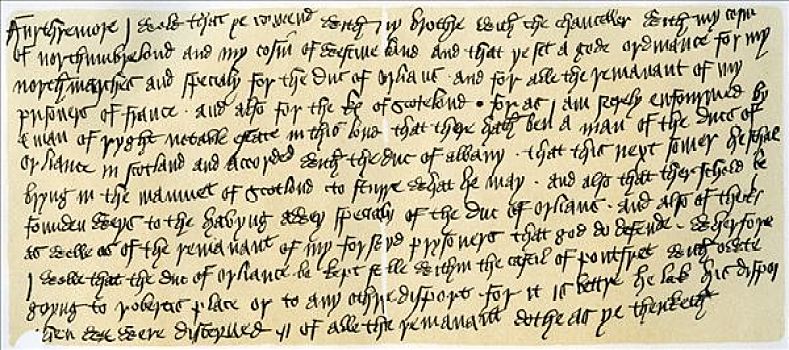 Furthremore I wole that ye comend with my brothre with the chanceller with my cosin
of northumbrelond and my cosin of westmerland and that ye set a gode ordinance for my
north marches and specialy for the duc of orlians and for alle the remanant of my
prisoners of france and also for the kyng of scotelond for as I am secrely enfourmed by
a man of ryght notable estate in this lond that there hath ben a man of the ducs of
orliance in scotland and accorded with the duc of albany that this next somer he schal
bryng in the mammet of scotlond to sturre what he may and also that ther schold be
founden weys to the havyng awey specialy of the duc of orlians and also of the
as welle as of the remanant of my forseyd prysoners that god do defende wherfore
I wolle that the duc of orliance be kept stille within the castil of pontfret with owte
goyng to robertis place or to any othre disport for it is bettre he lak his disport
then we were disceyved of alle the remanant dothe as ye thenketh